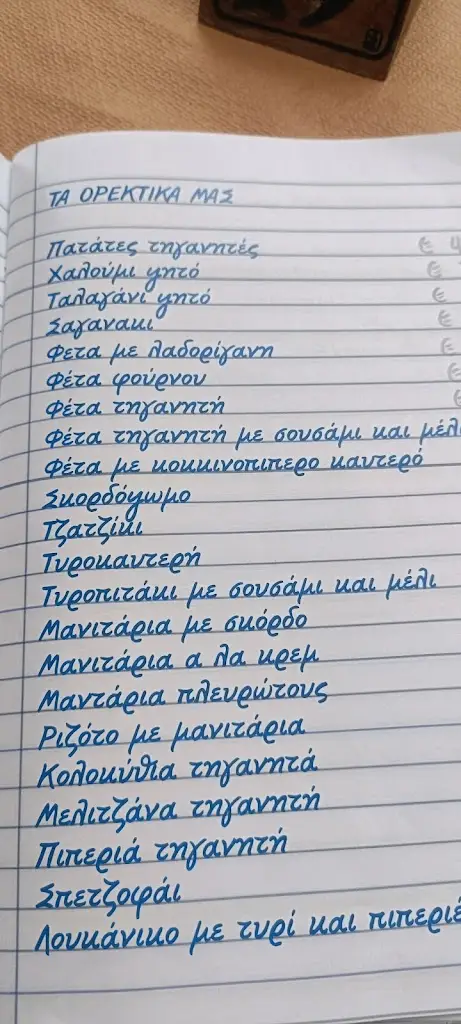 ΤΑ ΟΡΕΚΤΙΚΑ ΜΑΣ
Πατάτες τηγανητές €
Χαλούμι ψητό €
Ταλαγάνι ψητό €
Σαγανακι €
Φετα με λαδορίγανη €
Φέτα φούρνου €
Φέτα τηγανητή €
Φέτα τηγανητή με σουσάμι και μέλι
Φέτα με κοκκινοπιπερο καυτερό
Σκορδόψωμο
Τζατζίκι
Τυροκαυτερή
Τυροπιτάκι με σουσάμι και μέλι
Μανιτάρια με σκόρδο
Μανιτάρια α λα κρεμ
Μαντάρια πλευρώτους
Ριζότο με μανιτάρια
Κολοκύθια τηγανητά
Μελιτζάνα τηγανητή
Πιπεριά τηγανητή
Σπετζοφάι
Λουκάνικο με τυρί και